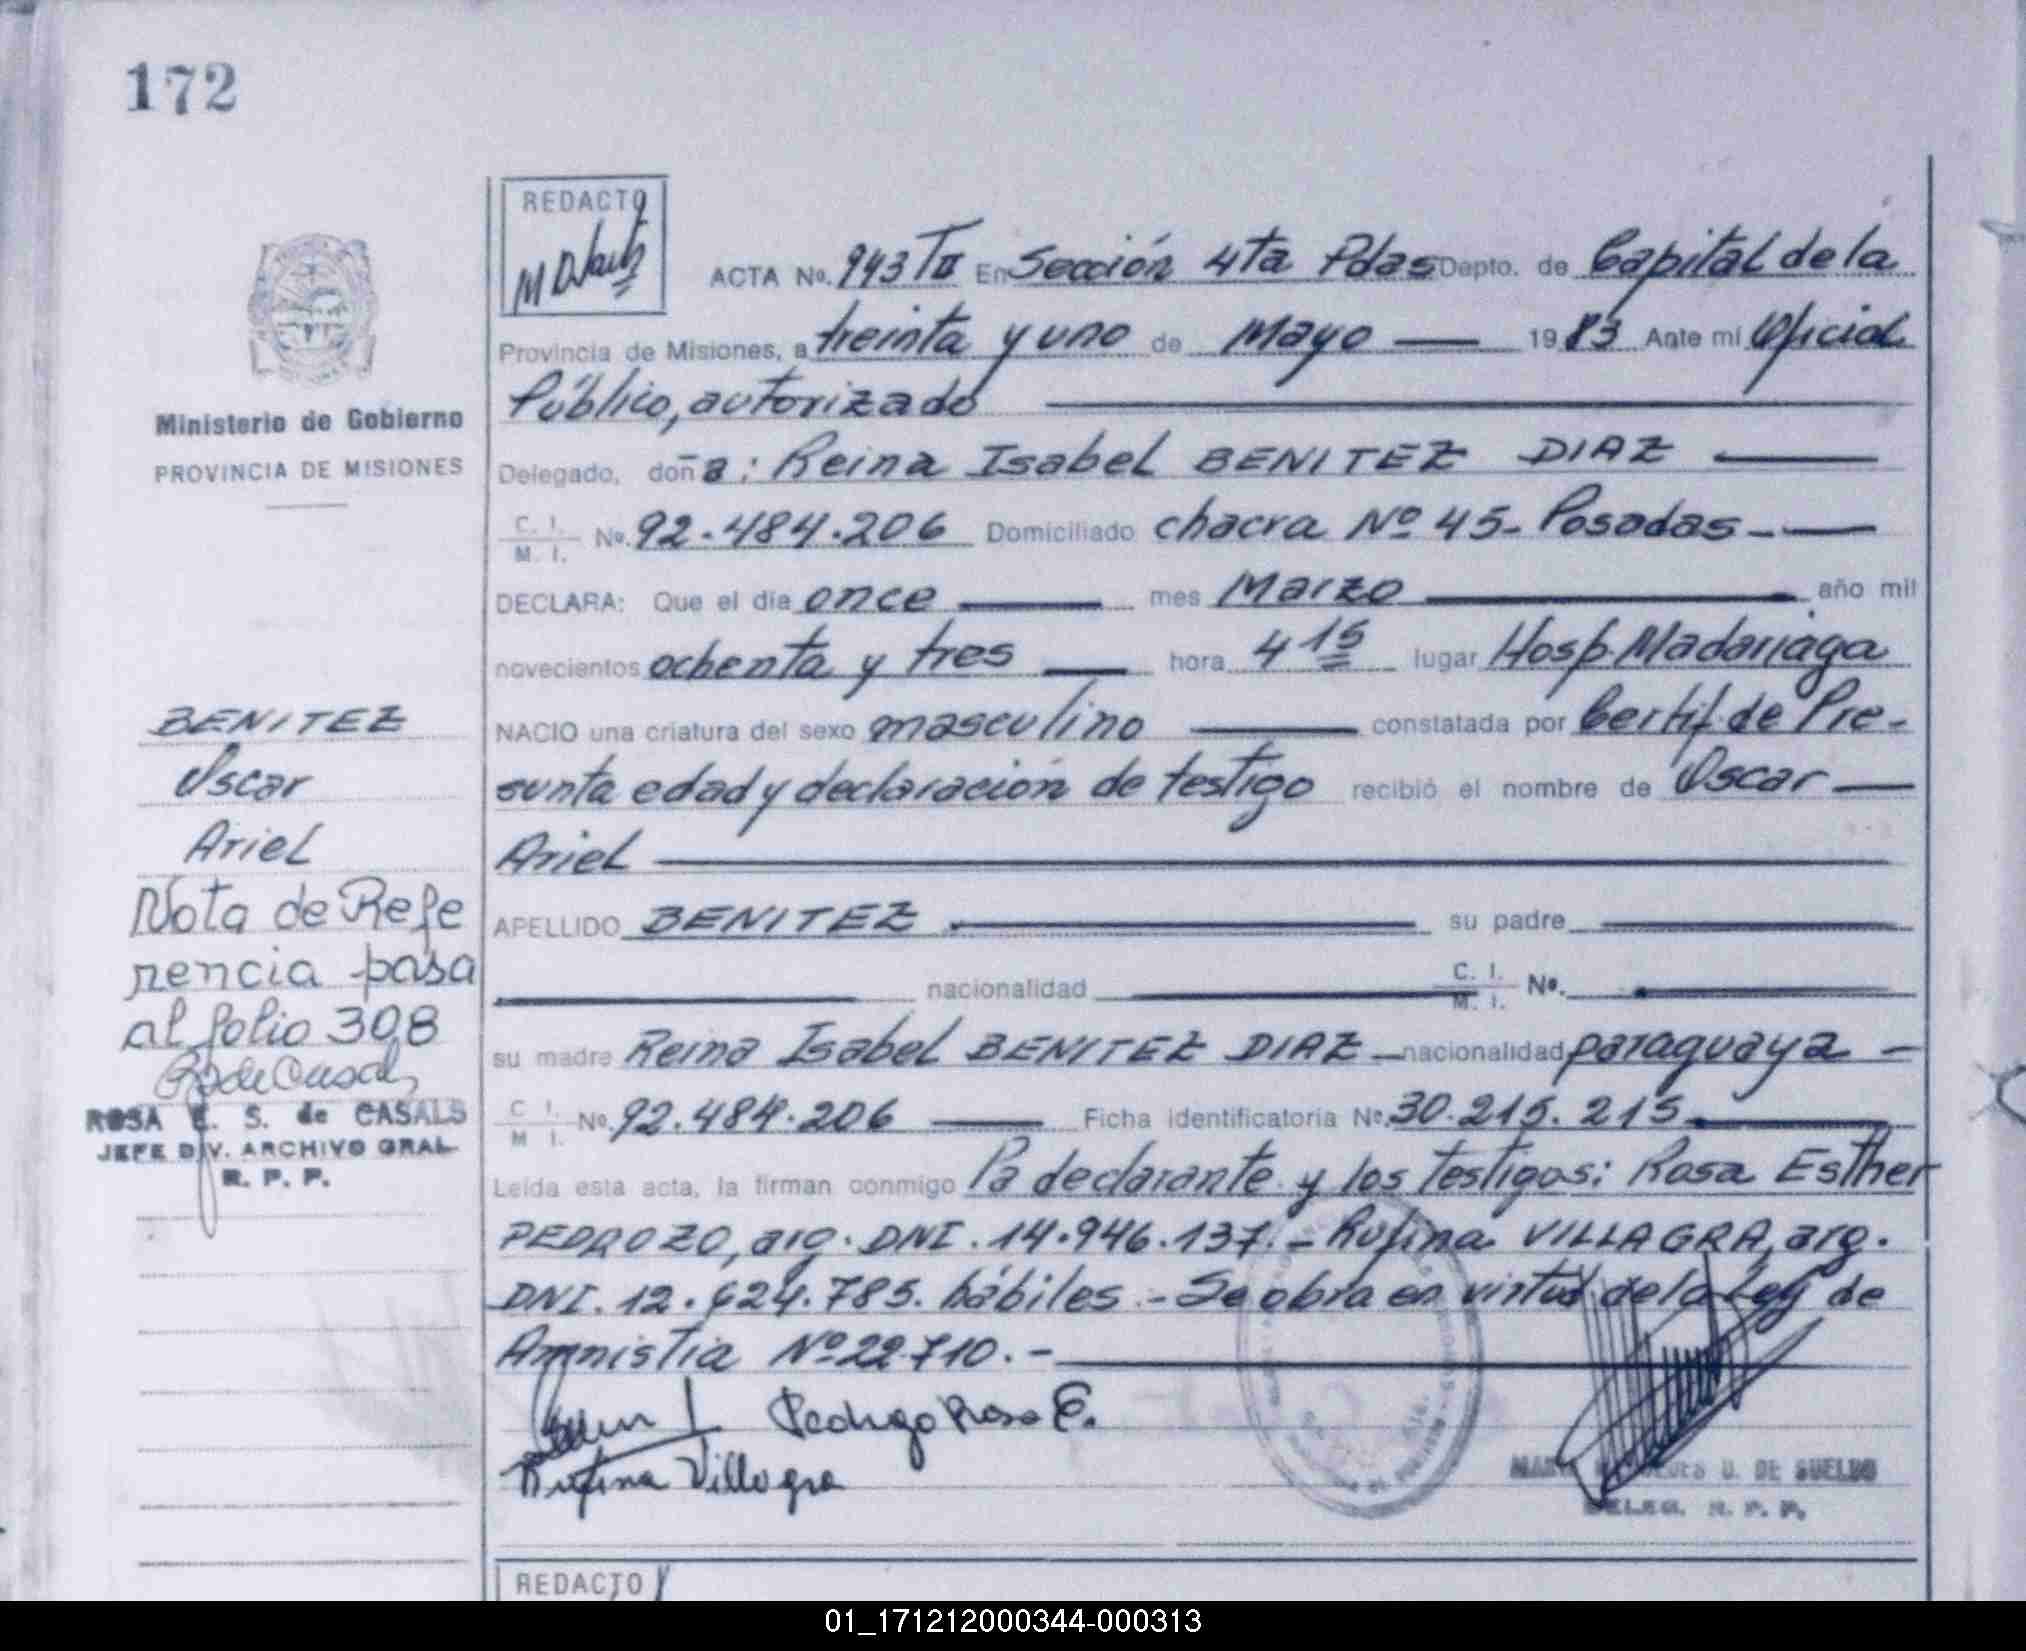 172
REDACTO
ACTA No. 943 T II En Sección 4ta Pdas Depto. de Capital de la
Provincia de Misiones, a treinta y uno de Mayo 1983 Ante mi Oficial
Público, autorizado
Ministerio de Gobierno
PROVINCIA DE MISIONES
Delegado, doña: Reina Isabel BENITEZ DIAZ
C. I. / M. I. No. 92.484.206 Domiciliado chacra Nº 45- Posadas-
DECLARA: Que el día once mes Marzo año mil
novecientos ochenta y tres hora 4 15 lugar Hosp. Madariaga
NACIO una criatura del sexo masculino constatada por Certif. de Pre-
sunta edad y declaración de testigo recibió el nombre de Oscar
Ariel
APELLIDO BENITEZ su padre
nacionalidad C. I. / M. I. No.
su madre Reina Isabel BENITEZ DIAZ nacionalidad paraguaya
C. I. / M. I. No. 92.484.206 Ficha identificatoria No. 30.215.215
Leída esta acta, la firman conmigo la declarante y los testigos: Rosa Esther
PEDROZO, arg. DNI. 14.946.137.- Rufina VILLAGRA, arg.
DNI. 12.624.785. hábiles.- Se obra en virtud de la Ley de
Amnistia Nº 22.710.-
BENITEZ
Oscar
Ariel
Nota de Refe
rencia pasa
al folio 308
ROSA E. S. de CASALS
JEFE DIV. ARCHIVO GRAL.
R. P. P.
Rosa E.
Rufina Villagra
U. DE SUELDO
DELEG. R. P. P.
REDACTO
01_171212000344-000313